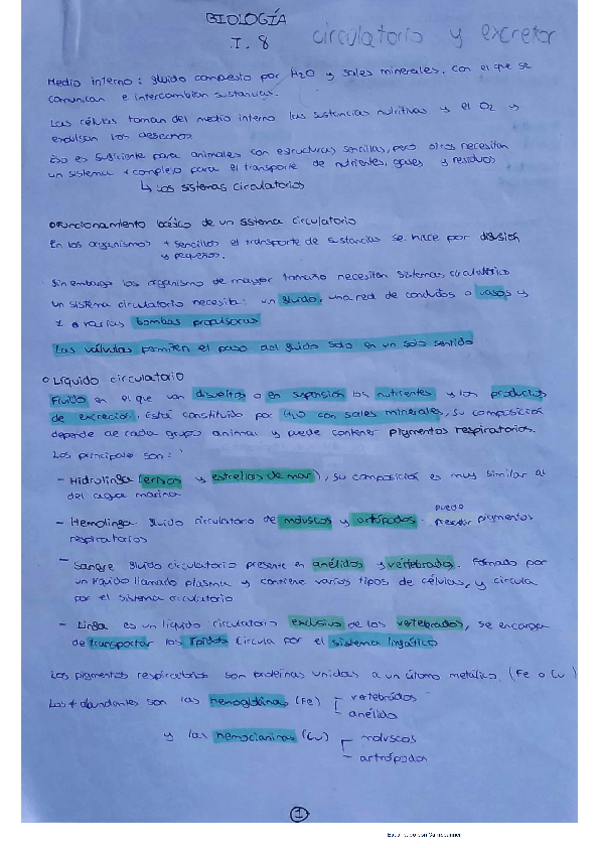 BIOLOGÍA
T. 8 circulatorio y excretor
Medio interno: fluido compuesto por H2O y sales minerales, con el que se
comunican e intercambian sustancias.
Las células toman del medio interno las sustancias nutritivas y el O2 y
expulsan los desechos
Eso es suficiente para animales con estructuras sencillas, pero otros necesitan
un sistema + complejo para el transporte de nutrientes, gases y residuos
↳ Los sistemas circulatorios
Funcionamiento básico de un sistema circulatorio
En los organismos + sencillos el transporte de sustancias se hace por difusión
y pequeños.
Sin embargo los organismo de mayor tamaño necesitan sistemas circulatorios
un sistema circulatorio necesita: un fluido, una red de conductos o vasos y
1 o varias bombas propulsoras
Las válvulas permiten el paso del fluido solo en un solo sentido
Líquido circulatorio
Fluido en el que van disueltos o en suspensión los nutrientes y los productos
de excreción, está constituido por H2O con sales minerales, su composición
depende de cada grupo animal y puede contener pigmentos respiratorios.
Los principales son:
- Hidrolinfa (erizos y estrellas de mar), su composición es muy similar al
del agua marina
- Hemolinfa fluido circulatorio de moluscos y artrópodos. puede
presentar pigmentos
respiratorios
- Sangre fluido circulatorio presente en anélidos y vertebrados. Formado por
un líquido llamado plasma y contiene varios tipos de células, y circula
por el sistema circulatorio
- Linfa es un líquido circulatorio exclusivo de los vertebrados, se encarga
de transportar los lípidos circula por el sistema linfático
Los pigmentos respiratorios son proteínas unidas a un átomo metálico. (Fe o Cu)
Los + abundantes son las hemoglobinas (Fe) vertebrados
anélido
y las hemocianinas (Cu) moluscos
artrópodos
1
Escaneado con CamScanner